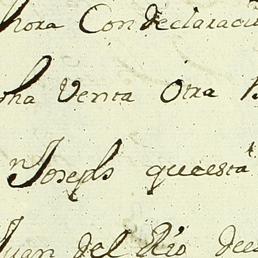 hora Condeclaracio
ha Venta Otra
n Joseph queesta
Juan del Rio dee